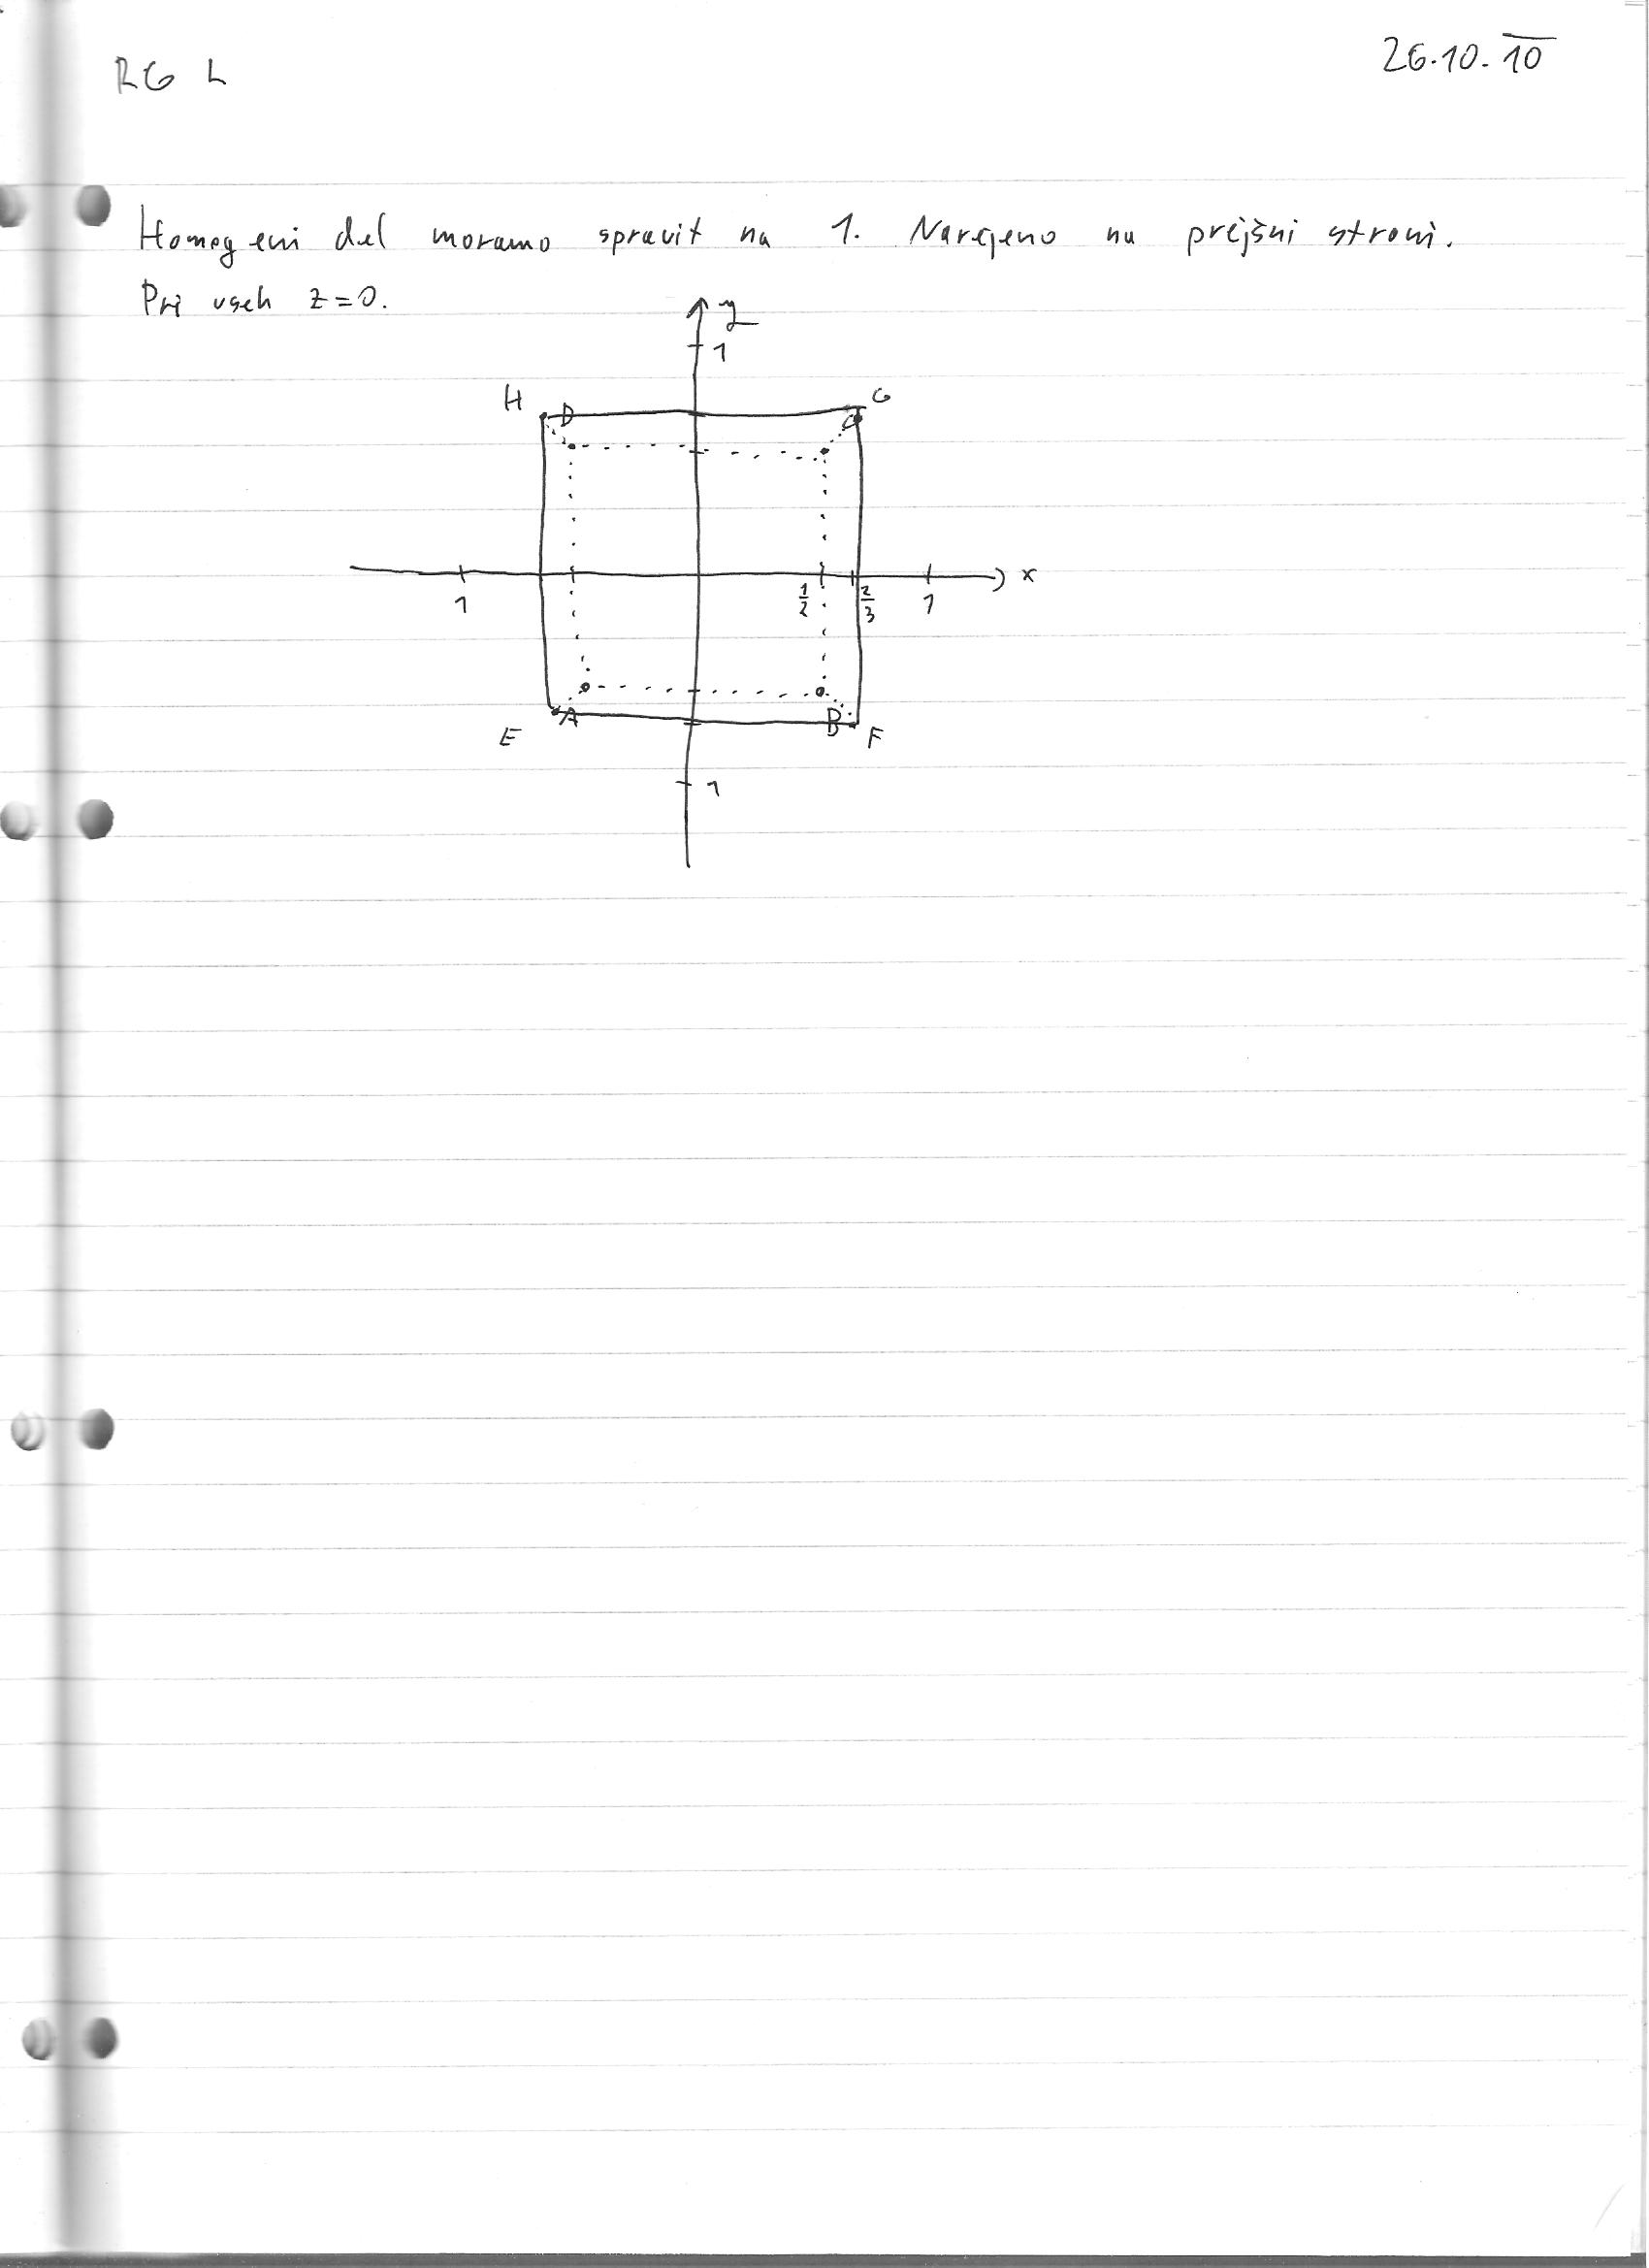 RG L
26.10.10
Homogeni del moramo spravit na 1. Narejeno na prejšni strani.
Pri vseh z=0.
y
1
H D G
C
1 1/2 2/3 1 x
E A B F
1